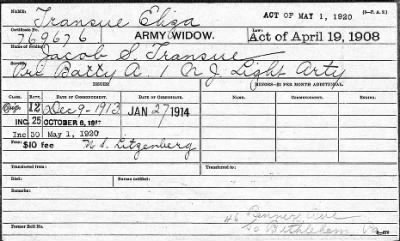 NAME: Transue Eliza
ACT OF MAY 1, 1920
Certificate No.
769676
ARMY WIDOW.
Law:
Act of April 19, 1908
Name of Soldier:
Jacob S Transue
Service:
Batty A. 1 N J. Light Arty
ISSUES
MINORS—$2 PER MONTH ADDITIONAL.
CLASS. RATE. DATE OF COMMENCEMENT. DATE OF CERTIFICATE.
12 Dec 9-1913 JAN 27 1914
INC. 25 OCTOBER 6, 1917
Inc 30 May 1, 1920
Fee: $10 fee N. S. Litzenberg
Transferred from:
Transferred to:
Died:
Remarks:
Former Roll No.
Ave
So Bethlehem, Pa.